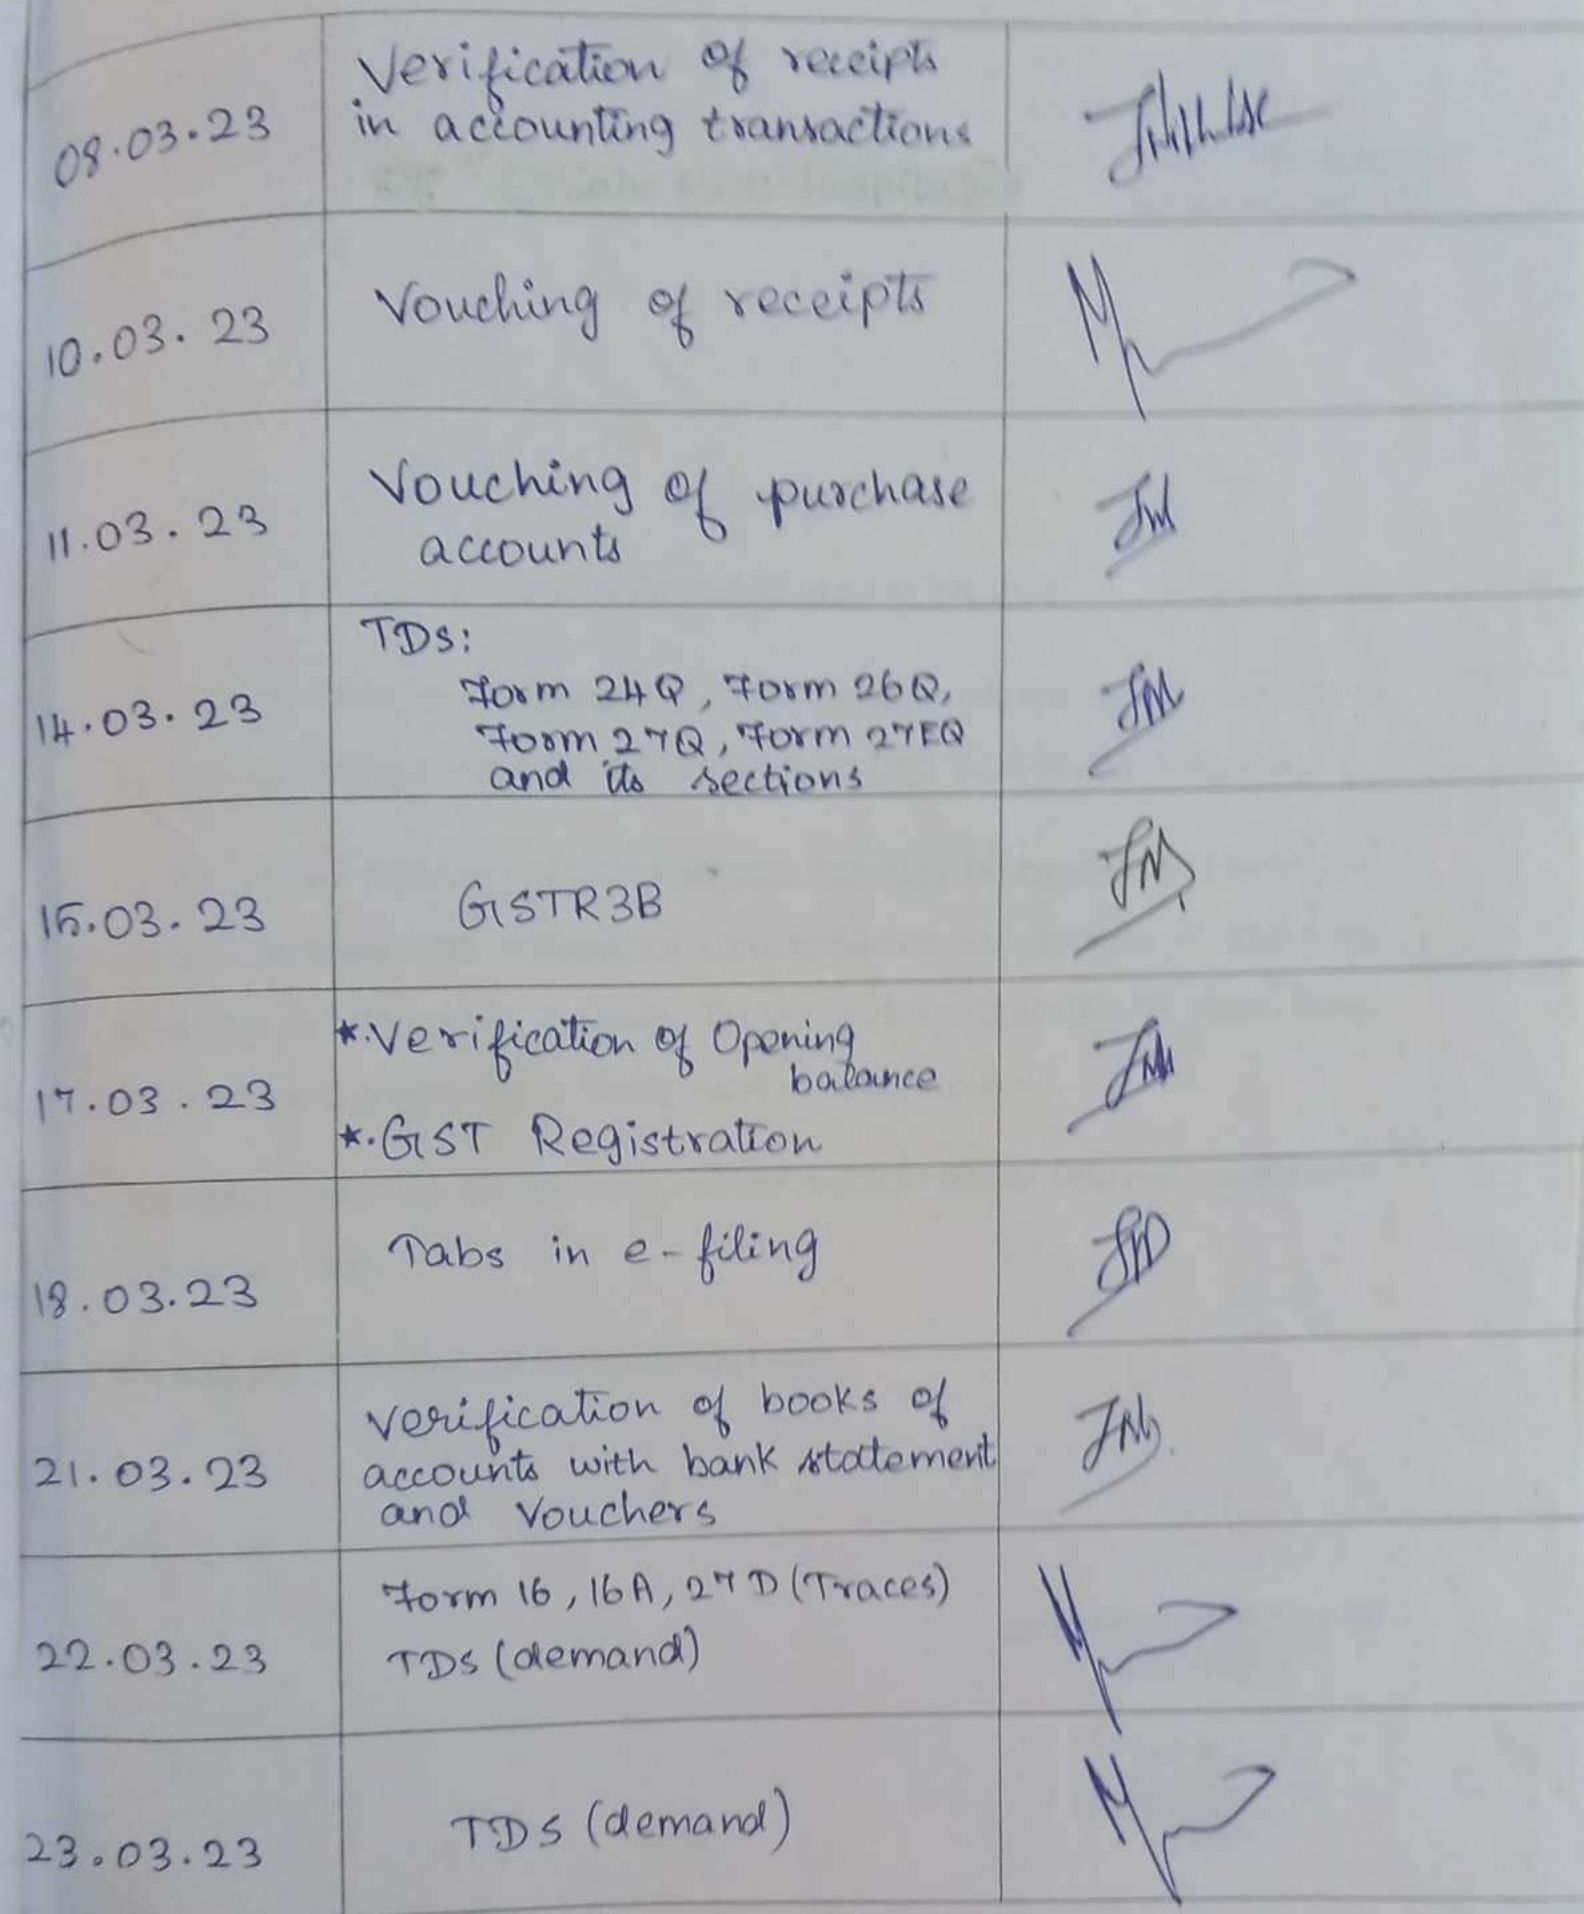 08.03.23
Verification of receipts
in accounting transactions
10.03.23
Vouching of receipts
11.03.23
Vouching of purchase
accounts
14.03.23
TDS:
Form 24Q, Form 26Q,
Form 27Q, Form 27EQ
and its sections
15.03.23
GSTR3B
17.03.23
*.Verification of Opening
balance
*.GST Registration
18.03.23
Tabs in e-filing
21.03.23
Verification of books of
accounts with bank statement
and Vouchers
22.03.23
Form 16, 16A, 27D (Traces)
TDS (demand)
23.03.23
TDS (demand)